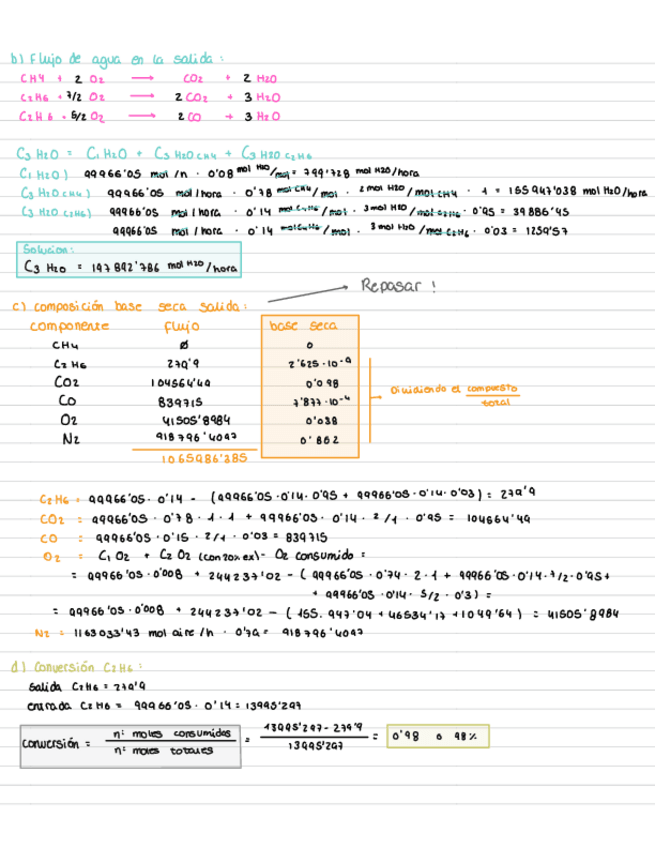 b) Flujo de agua en la salida:
CH4 + 2 O2 → CO2 + 2 H2O
C2H6 + 7/2 O2 → 2 CO2 + 3 H2O
C2H6 + 5/2 O2 → 2 CO + 3 H2O
C3 H2O = C1 H2O + C3 H2O CH4 + C3 H2O C2H6
C1 H2O) 99966'05 mol /h · 0'08 mol H2O/mol = 799'728 mol H2O/hora
C3 H2O CH4) 99966'05 mol / hora · 0'78 mol CH4/mol · 2 mol H2O/mol CH4 · 1 = 155947'038 mol H2O/hora
C3 H2O C2H6) 99966'05 mol / hora · 0'14 mol C2H6/mol · 3 mol H2O/mol C2H6 · 0'95 = 39886'45
99966'05 mol / hora · 0'14 mol C2H6/mol · 3 mol H2O/mol C2H6 · 0'03 = 1259'57
Solucion:
C3 H2O = 197892'786 mol H2O/hora
Repasar !
c) composición base seca salida:
componente flujo base seca
CH4 ø 0
C2H6 279'9 2'625·10-4
CO2 104564'49 0'098
CO 839715 7'877·10-4
O2 41505'8984 0'038
N2 918796'4047 0'862
1065986'385
Dividiendo el compuesto
total
C2H6 = 99966'05 · 0'14 - (99966'05·0'14·0'95 + 99966'05·0'14·0'03) = 279'9
CO2 = 99966'05 · 0'78 · 1 · 1 + 99966'05 · 0'14 · 2/1 · 0'95 = 104564'49
CO = 99966'05 · 0'15 · 2/1 · 0'03 = 839715
O2 = C1 O2 + C2 O2 (con 20% ex) - O2 consumido =
= 99966'05 · 0'008 + 244237'02 - ( 99966'05 · 0'74 · 2 · 1 + 99966'05 · 0'14 · 7/2 · 0'95 +
+ 99966'05 · 0'14 · 5/2 · 0'3) =
= 99966'05 · 0'008 + 244237'02 - (155.947'04 + 46534'17 + 1049'64) = 41505'8984
N2 = 1163033'43 mol aire /h · 0'79 = 918796'4047
d) Conversión C2H6:
salida C2H6 = 279'9
entrada C2H6 = 99966'05 · 0'14 = 13995'247
conversión = nº moles consumidos / nº moles totales = 13995'247 - 279'9 / 13995'247 = 0'98 o 98%